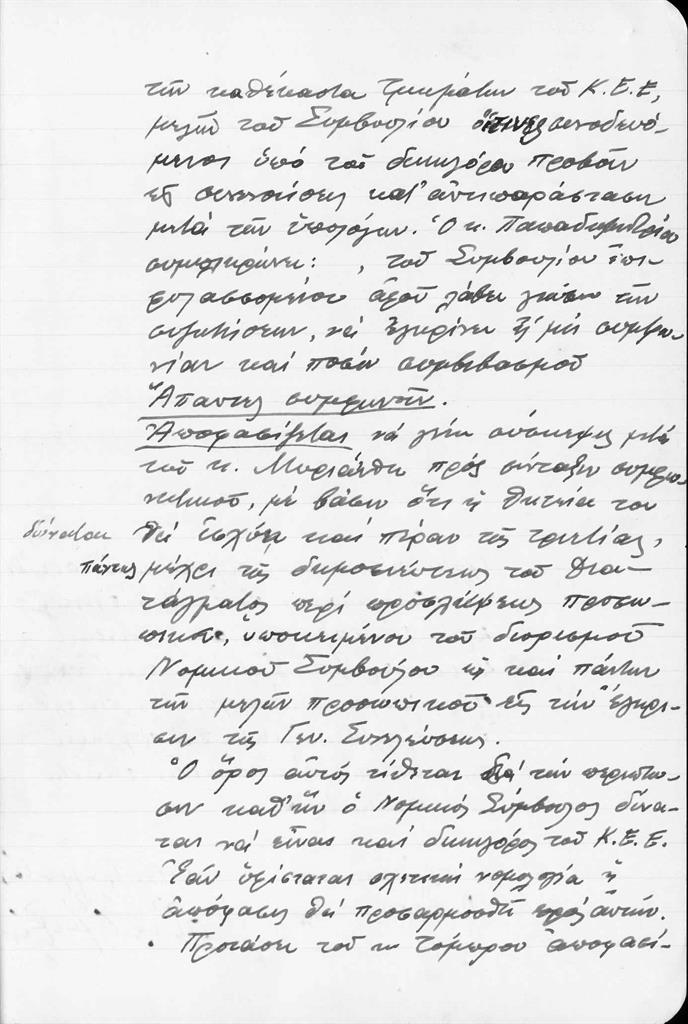 τῶν καθέκαστα τμημάτων τοῦ Κ.Ε.Ε,
μελῶν τοῦ Συμβουλίου οἵτινες συνοδευό-
μενοι ὑπό τοῦ δικηγόρου προβοῦν
εἰς συνεννοήσεις κατ' ἀντιπαράστασιν
μετά τῶν ὑπολόγων. Ὁ κ. Παπαδημητρίου
συμπληρώνει: , τοῦ Συμβουλίου ἐπι-
φυλασσομένου ἀφοῦ λάβει γνῶσιν τῶν
συζητήσεων, νά ἐγκρίνει ἤ μή συμφω-
νίαν καί ποσόν συμβιβασμοῦ
Ἅπαντες συμφωνοῦν.
Ἀποφασίζεται νά γίνει σύσκεψις μετά
τοῦ κ. Μυριάνθη πρός σύνταξιν συμφω-
νητικοῦ, μέ βάσιν ὅτι ἡ θητεία του
δύναται θά ἰσχύει καί πέραν τῆς τριετίας,
πάντως μέχρι τῆς δημοσιεύσεως τοῦ Δια-
τάγματος περί προσλήψεως προσω-
πικοῦ, ὑποκειμένου τοῦ διορισμοῦ
Νομικοῦ Συμβούλου ὡς καί πάντων
τῶν μελῶν προσωπικοῦ εἰς τήν ἔγκρι-
σιν τῆς Γεν. Συνελεύσεως.
Ὁ ὅρος αὐτός τίθεται διά τήν περίπτω-
σιν καθ' ἥν ὁ Νομικός Σύμβουλος δύνα-
ται νά εἶναι καί δικηγόρος τοῦ Κ.Ε.Ε.
Ἐάν ὑφίσταται σχετική νομολογία ἤ
ἀπόφασις θά προσαρμοσθῆ πρός αὐτήν.
Προτάσει τοῦ κ. Τόμαρου ἀποφασί-